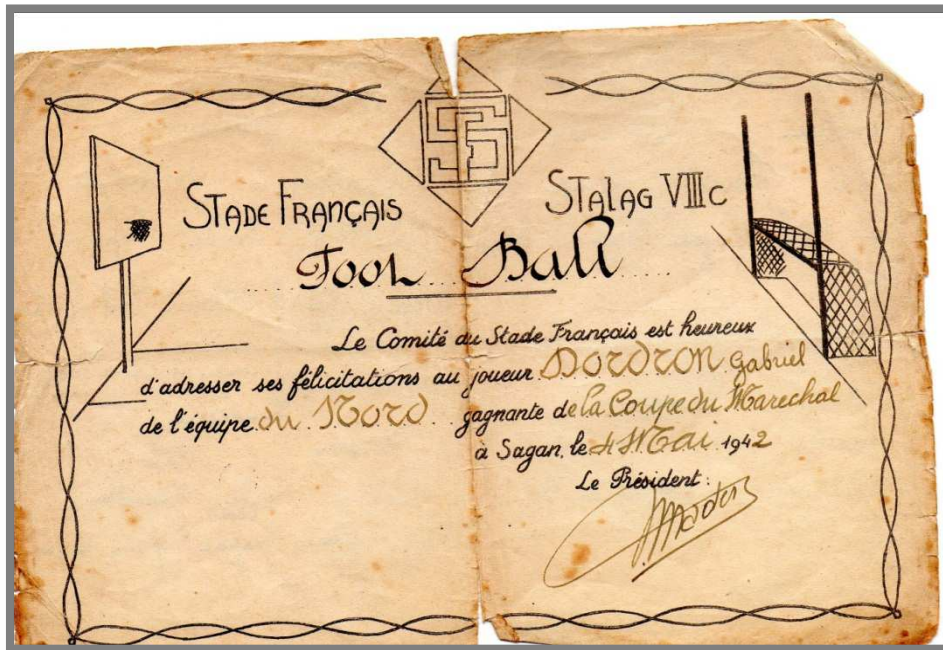 SF
STADE FRANÇAIS
STALAG VIII C
Foot Ball
Le Comité du Stade Français est heureux
d'adresser ses félicitations au joueur Dordron Gabriel
de l'équipe du Nord gagnante de la Coupe du Marechal
à Sagan, le 4 Mai 1942
Le Président: